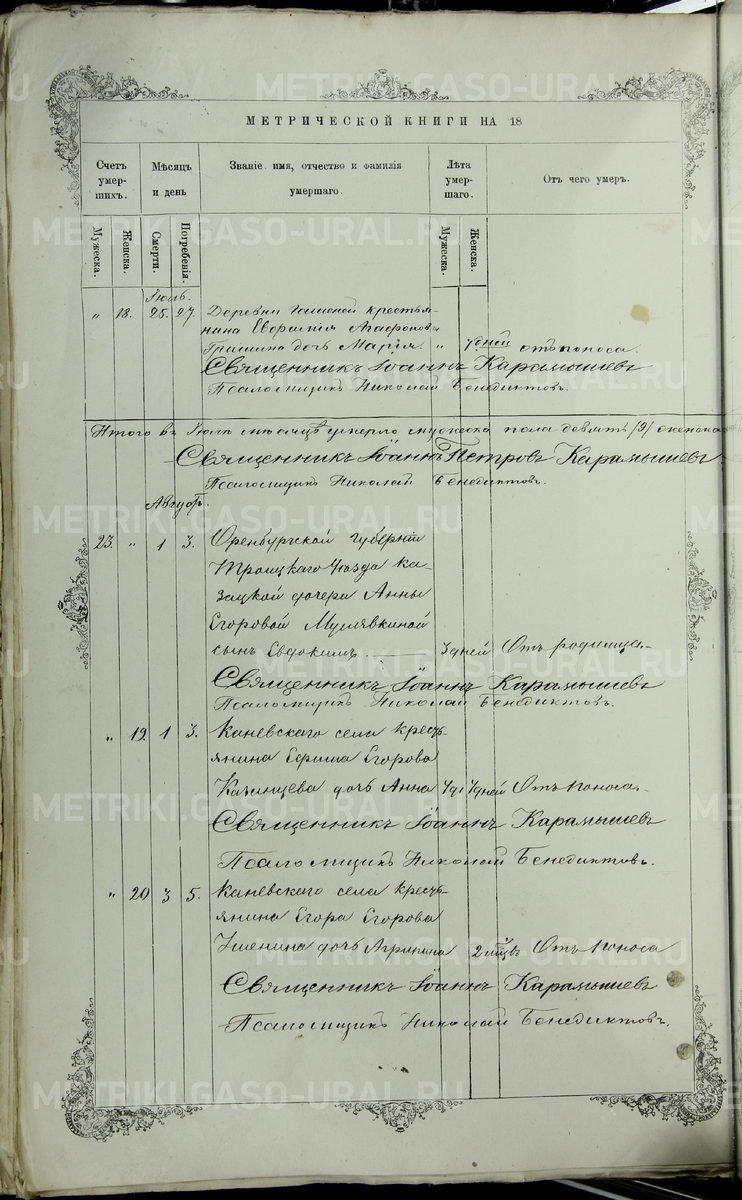 МЕТРИЧЕСКОЙ КНИГИ НА 18
Счетъ умер-шихъ.
Мѣсяцъ и день
Званіе, имя, отчество и фамилія умершаго.
Лѣта умер-шаго.
Отъ чего умеръ.
Мужеска.
Женска.
Смерти.
Погребенія.
Мужеска.
Женска.
Іюль.
" 18. 25. 27. Деревни крестья-
нина Агафонова
дочь Марія. " 7 дней отъ поноса.
Священникъ Іоаннъ Карамышевъ
Псаломщикъ Николай Бенедиктовъ.
Итого въ Іюлѣ мѣсяцѣ умерло мужеска пола девять (9) женска
Священникъ Іоаннъ Петровъ Карамышевъ
Псаломщикъ Николай Бенедиктовъ.
Августъ.
23. " 1 3. Оренбургской Губерніи
Троицкаго Уѣзда Ка-
зацкой дочери Анны
Егоровой Мулявкиной
сынъ Евдокимъ 3 дней Отъ родимца.
Священникъ Іоаннъ Карамышевъ
Псаломщикъ Николай Бенедиктовъ.
" 19. 1 3. Каневскаго села крест-
янина Ефима Егорова
Казанцева дочь Анна дней Отъ поноса.
Священникъ Іоаннъ Карамышевъ
Псаломщикъ Николай Бенедиктовъ.
" 20 3 5. Каневскаго села крест-
янина Егора Егорова
дочь Агрипина 2 мѣсв Отъ поноса
Священникъ Іоаннъ Карамышевъ
Псаломщикъ Николай Бенедиктовъ.
METRIKI.GASO-URAL.RU